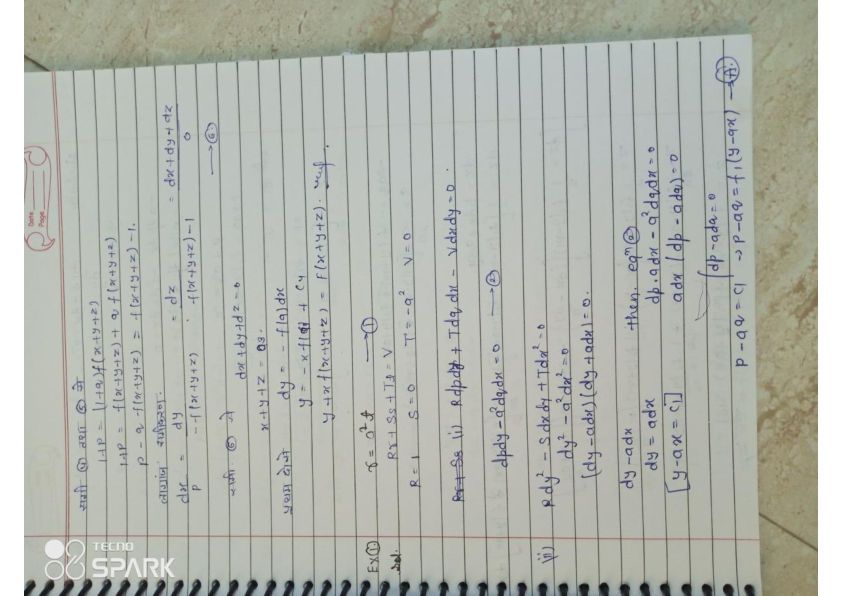 Date
Page
समी ⑤ तथा ⑥ से
1+P = (1+q) f(x+y+z)
1+P = f(x+y+z) + q f(x+y+z)
P - q f(x+y+z) = f(x+y+z) - 1.
लाग्रांज समीकरण.
dx/P = dy/-f(x+y+z) = dz/f(x+y+z)-1 = dx+dy+dz/0 → ⑥.
समी ⑥ से
dx+dy+dz = 0
x+y+z = a3.
प्रथम दोनों dy = -f(a)dx
y = -x f(a) + c4
y + x f(x+y+z) = F(x+y+z).
Ex ① r = a²t → ①
Sol. Rr + Ss + Tt = V
R = 1 S = 0 T = -a² V = 0
i) Rdpdy + Tdqdx - Vdxdy = 0.
dpdy - a²dqdx = 0 → ②
ii) Rdy² - Sdxdy + Tdx² = 0
dy² - a²dx² = 0
(dy - adx)(dy + adx) = 0.
dy - adx then. eqn ②
dy = adx dp.adx - a²dqdx = 0
[y - ax = c1] adx (dp - adq) = 0
∫dp - adq = 0
P - aq = c1 → P - aq = f1(y - ax) → Ⓐ.
TECNO
SPARK